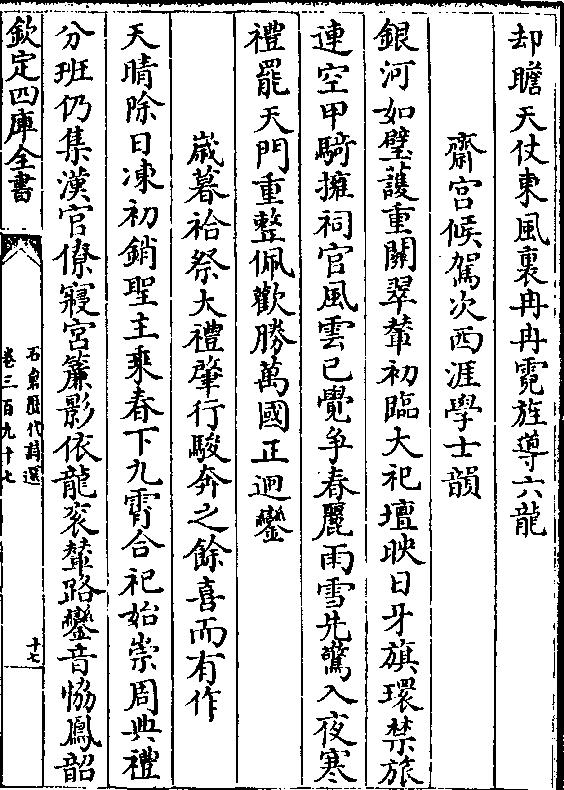 却瞻天仗東風裏冉冉霓旌導六龍
齋宫候駕次西涯學士韻
銀河如璧護重闗翠輦初臨大祀壇映日牙旗環禁旅
連空甲騎擁祠官風雲已覺争春麗雨雪先驚入夜寒
禮罷天門重整佩歡勝萬國正迴鑾
歲暮祫祭大禮肇行駿奔之餘喜而有作
天晴除日凍初銷聖主乘春下九霄合祀始崇周典禮
分班仍集漢官僚寢宫簾影依龍衮輦路鑾音協鳳韶
欽定四庫全書
石倉歷代詩選
卷三百九十七
十七